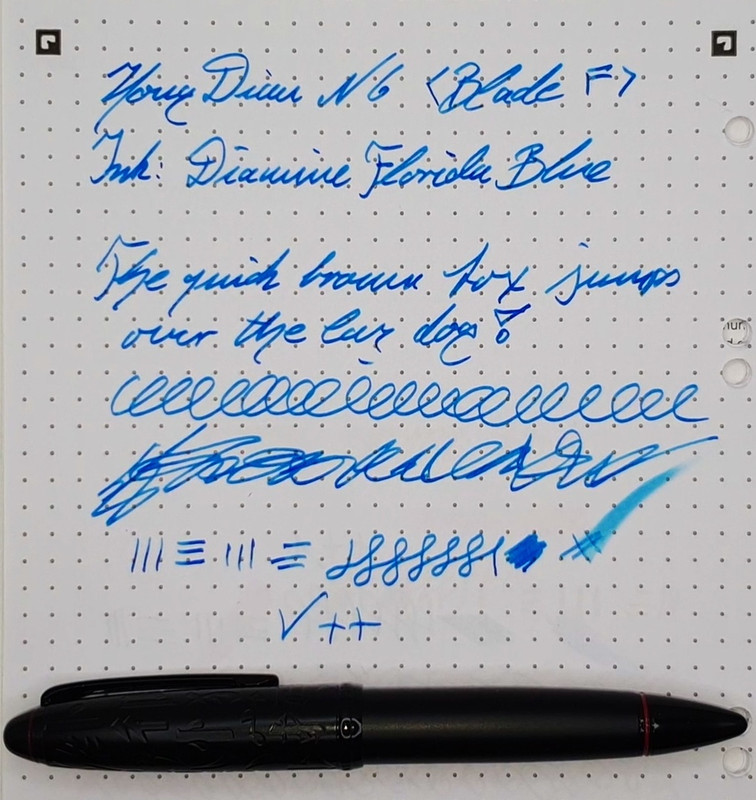 Hong Dian N6 <Blade F>
Ink: Diamine Florida Blue
The quick brown fox jumps
over the lazy dog!